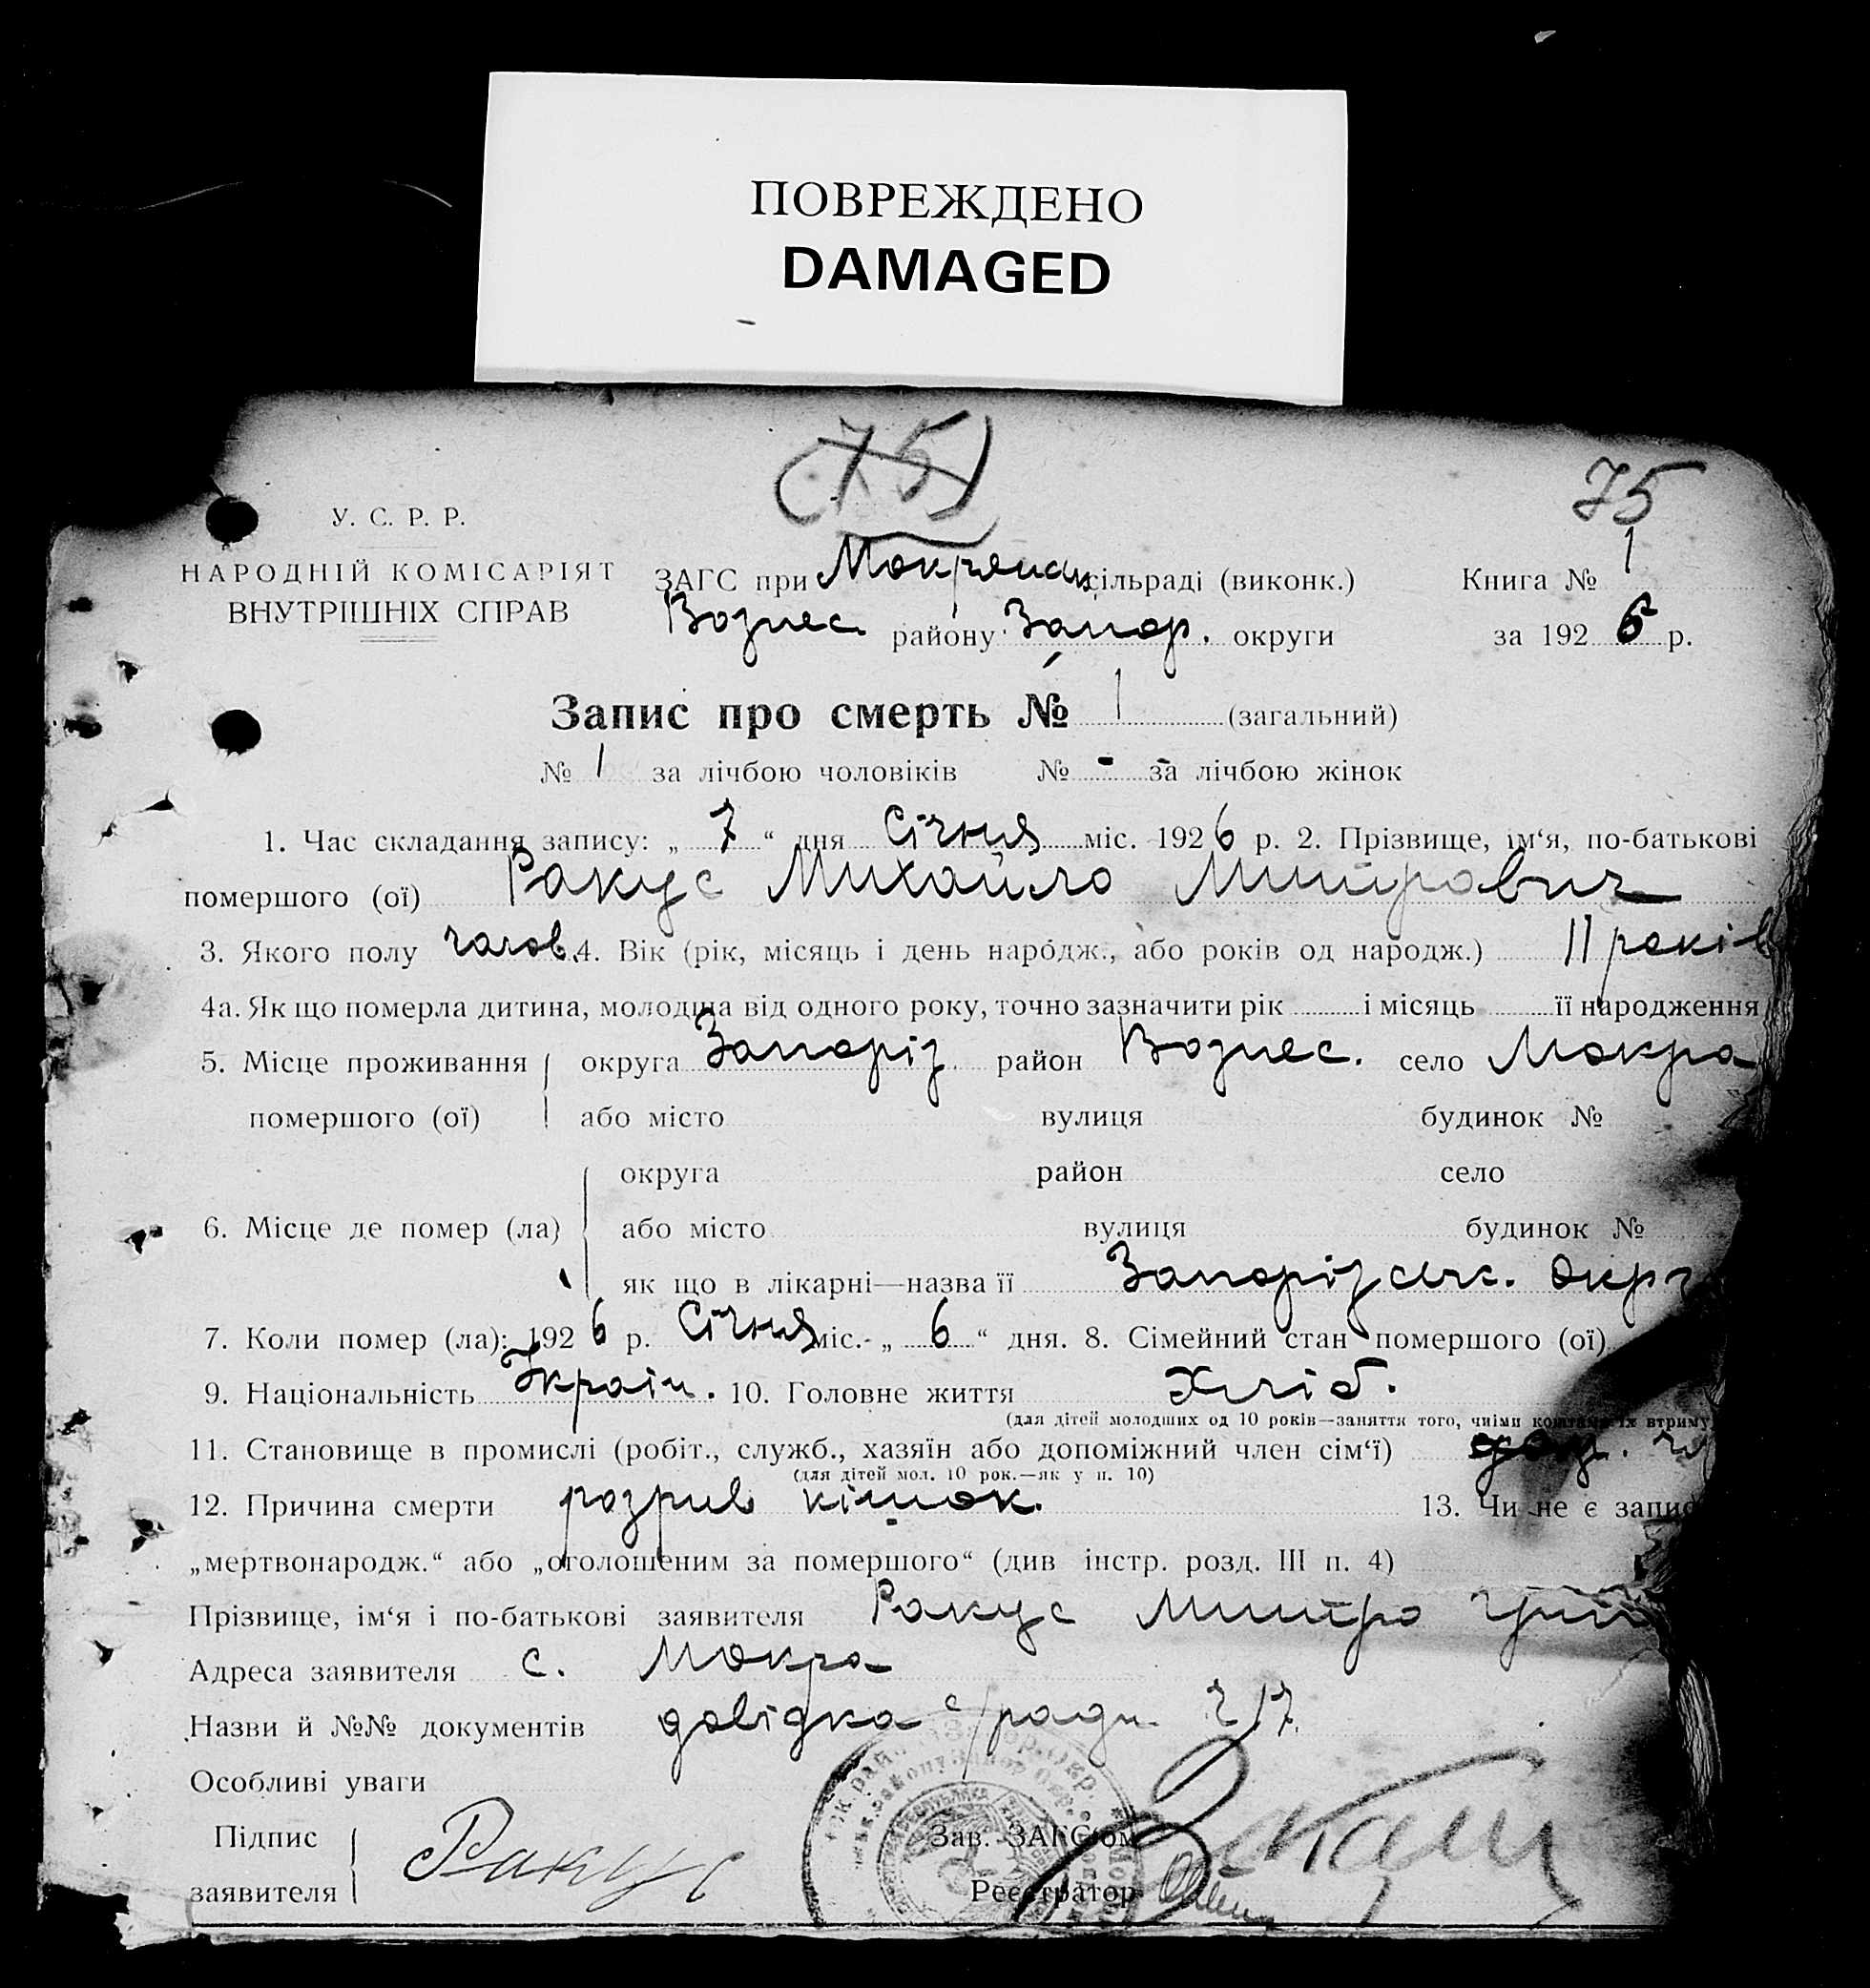 ПОВРЕЖДЕНО
DAMAGED
(75)
75
У. С. Р. Р.
НАРОДНІЙ КОМІСАРІЯТ
ВНУТРІШНІХ СПРАВ
ЗАГС при Мокрянск сільраді (виконк.) Книга № 1
Вознес. району Запор. округи за 1926 р.
Запис про смерть № 1 (загальний)
№ 1 за лічбою чоловіків № - за лічбою жінок
1. Час складання запису: „ 7 “ дня Січня міс. 1926 р. 2. Прізвище, ім‘я, по-батькові
помершого (ої) Ракус Михайло Митрович
3. Якого полу чолов. 4. Вік (рік, місяць і день народж., або років од народж.) 11 років
4а. Як що померла дитина, молодша від одного року, точно зазначити рік і місяць її народження
5. Місце проживання округа Запоріз район Вознес. село Мокра
помершого (ої) або місто вулиця будинок №
округа район село
6. Місце де помер (ла) або місто вулиця будинок №
як що в лікарні—назва її Запорізськ. окр
7. Коли помер (ла): 1926 р. Січня міс. „ 6 “ дня. 8. Сімейний стан помершого (ої)
9. Національність Україн. 10. Головне життя Хліб.
(для дітей молодших од 10 років—заняття того, чиїми коштами їх втриму
11. Становище в промислі (робіт., служб., хазяїн або допоміжний член сім‘ї)
(для дітей мол. 10 рок.—як у п. 10)
12. Причина смерти розрив кішок. 13. Чи не є запис
„мертвонародж.“ або „оголошеним за помершого“ (див інстр. розд. III п. 4)
Прізвище, ім‘я і по-батькові заявителя Ракус Митро
Адреса заявителя с. Мокра
Назви й №№ документів довідка с/ради
Особливі уваги
Підпис Зав. ЗАГС‘ом
заявителя Ракус Реєстратор